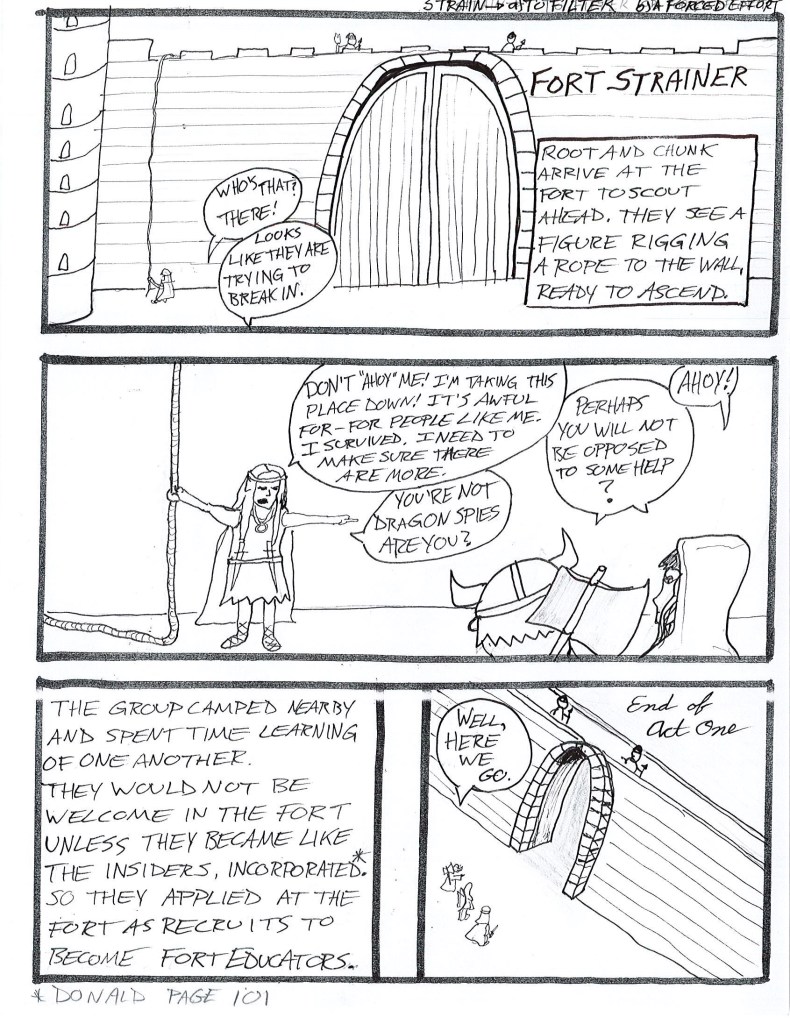 STRAIN → AS TO FILTER BY A FORCED EFFORT
FORT STRAINER
ROOT AND CHUNK
ARRIVE AT THE
FORT TO SCOUT
AHEAD. THEY SEE A
FIGURE RIGGING
A ROPE TO THE WALL,
READY TO ASCEND.
WHO'S THAT?
THERE!
LOOKS
LIKE THEY ARE
TRYING TO
BREAK IN.
AHOY!
DON'T "AHOY" ME! I'M TAKING THIS
PLACE DOWN! IT'S AWFUL
FOR-FOR PEOPLE LIKE ME.
I SURVIVED. I NEED TO
MAKE SURE THERE
ARE MORE.
YOU'RE NOT
DRAGON SPIES
ARE YOU?
PERHAPS
YOU WILL NOT
BE OPPOSED
TO SOME HELP
?
THE GROUP CAMPED NEARBY
AND SPENT TIME LEARNING
OF ONE ANOTHER.
THEY WOULD NOT BE
WELCOME IN THE FORT
UNLESS THEY BECAME LIKE
THE INSIDERS, INCORPORATED.*
SO THEY APPLIED AT THE
FORT AS RECRUITS TO
BECOME FORT EDUCATORS.
WELL,
HERE
WE
GO.
End of
Act One
* DONALD PAGE 101